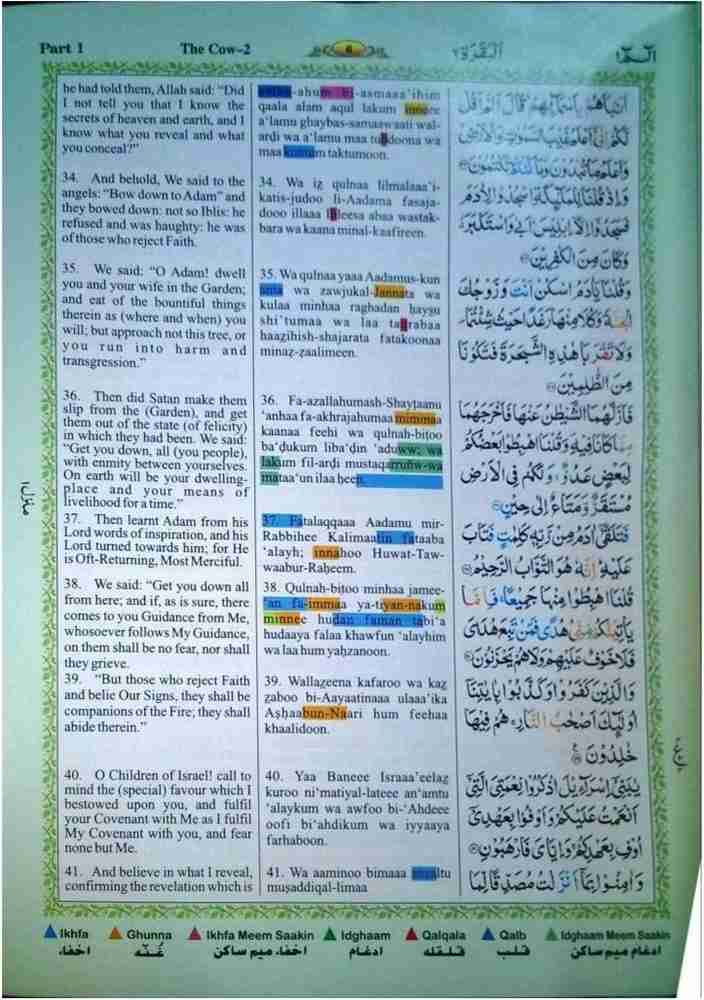 Part 1
The Cow–2
6
البقرة ٢
الٓمّٓ ١
he had told them, Allah said: “Did
I not tell you that I know the
secrets of heaven and earth, and I
know what you reveal and what
you conceal?”
34. And behold, We said to the
angels: “Bow down to Adam” and
they bowed down: not so Iblis: he
refused and was haughty: he was
of those who reject Faith.
35. We said: “O Adam! dwell
you and your wife in the Garden;
and eat of the bountiful things
therein as (where and when) you
will; but approach not this tree, or
you run into harm and
transgression.”
36. Then did Satan make them
slip from the (Garden), and get
them out of the state (of felicity)
in which they had been. We said:
“Get you down, all (you people),
with enmity between yourselves.
On earth will be your dwelling-
place and your means of
livelihood for a time.”
37. Then learnt Adam from his
Lord words of inspiration, and his
Lord turned towards him; for He
is Oft-Returning, Most Merciful.
38. We said: “Get you down all
from here; and if, as is sure, there
comes to you Guidance from Me,
whosoever follows My Guidance,
on them shall be no fear, nor shall
they grieve.
39. “But those who reject Faith
and belie Our Signs, they shall be
companions of the Fire; they shall
abide therein.”
40. O Children of Israel! call to
mind the (special) favour which I
bestowed upon you, and fulfil
your Covenant with Me as I fulfil
My Covenant with you, and fear
none but Me.
41. And believe in what I reveal,
confirming the revelation which is
-ahum bi-asmaaa’ihim
qaala alam aqul lakum innee
a‘lamu ghaybas-samaawaati wal-
arḍi wa a‘lamu maa tubdoona wa
maa kuntum taktumoon.
34. Wa iz̲ qulnaa lilmalaaa’i-
katis-judoo li-Aadama fasaja-
dooo illaaa Ibleesa abaa wastak-
bara wa kaana minal-kaafireen.
35. Wa qulnaa yaaa Aadamus-kun
anta wa zawjukal-Jannata wa
kulaa minhaa raghadan ḥaysu
shi’tumaa wa laa taqrabaa
haaz̲ihish-shajarata fatakoonaa
minaz-zaalimeen.
36. Fa-azallahumash-Shayṭaanu
‘anhaa fa-akhrajahumaa mimmaa
kaanaa feehi wa qulnah-bitoo
ba‘ḍukum liba‘ḍin ‘aduww; wa
lakum fil-arḍi mustaqarruñw-wa
mataa‘un ilaa ḥeen.
37. Fatalaqqaaa Aadamu mir-
Rabbihee Kalimaatin fataaba
‘alayh; innahoo Huwat-Taw-
waabur-Raḥeem.
38. Qulnah-bitoo minhaa jamee-
‘an fa-immaa ya-tiyan-nakum
minnee hudan faman tabi‘a
hudaaya falaa khawfun ‘alayhim
wa laa hum yaḥzanoon.
39. Wallaz̲eena kafaroo wa kaz̲
z̲aboo bi-Aayaatinaaa ulaaa’ika
Aṣḥaabun-Naari hum feehaa
khaalidoon.
40. Yaa Baneee Israaa’eelaz̲
kuroo ni‘matiyal-lateee an‘amtu
‘alaykum wa awfoo bi-‘Ahdeee
oofi bi‘ahdikum wa iyyaaya
farhaboon.
41. Wa aaminoo bimaaa anzaltu
muṣaddiqal-limaa
اَنْۢبَاَهُمْ بِاَسْمَآئِهِمْ قَالَ اَلَمْ اَقُلْ
لَّكُمْ اِنِّیْۤ اَعْلَمُ غَیْبَ السَّمٰوٰتِ وَالْاَرْضِ
وَاَعْلَمُ مَا تُبْدُوْنَ وَمَا كُنْتُمْ تَكْتُمُوْنَ
وَاِذْ قُلْنَا لِلْمَلٰٓئِكَةِ اسْجُدُوْا لِاٰدَمَ
فَسَجَدُوْۤا اِلَّاۤ اِبْلِیْسَ اَبٰی وَاسْتَكْبَرَ
وَكَانَ مِنَ الْكٰفِرِیْنَ
وَقُلْنَا یٰۤاٰدَمُ اسْكُنْ اَنْتَ وَزَوْجُكَ
الْجَنَّةَ وَكُلَا مِنْهَا رَغَدًا حَیْثُ شِئْتُمَا
وَلَا تَقْرَبَا هٰذِهِ الشَّجَرَةَ فَتَكُوْنَا
مِنَ الظّٰلِمِیْنَ
فَاَزَلَّهُمَا الشَّیْطٰنُ عَنْهَا فَاَخْرَجَهُمَا
مِمَّا كَانَا فِیْهِ وَقُلْنَا اهْبِطُوْا بَعْضُكُمْ
لِبَعْضٍ عَدُوٌّ وَلَكُمْ فِی الْاَرْضِ
مُسْتَقَرٌّ وَّمَتَاعٌ اِلٰی حِیْنٍ
فَتَلَقّٰۤی اٰدَمُ مِنْ رَّبِّهٖ كَلِمٰتٍ فَتَابَ
عَلَیْهِ اِنَّهٗ هُوَ التَّوَّابُ الرَّحِیْمُ
قُلْنَا اهْبِطُوْا مِنْهَا جَمِیْعًا فَاِمَّا
یَاْتِیَنَّكُمْ مِّنِّیْ هُدًی فَمَنْ تَبِعَ هُدَایَ
فَلَا خَوْفٌ عَلَیْهِمْ وَلَا هُمْ یَحْزَنُوْنَ
وَالَّذِیْنَ كَفَرُوْا وَكَذَّبُوْا بِاٰیٰتِنَاۤ
اُولٰٓئِكَ اَصْحٰبُ النَّارِ هُمْ فِیْهَا
خٰلِدُوْنَ
یٰبَنِیْۤ اِسْرَآءِیْلَ اذْكُرُوْا نِعْمَتِیَ الَّتِیْۤ
اَنْعَمْتُ عَلَیْكُمْ وَاَوْفُوْا بِعَهْدِیْۤ
اُوْفِ بِعَهْدِكُمْ وَاِیَّایَ فَارْهَبُوْنِ
وَاٰمِنُوْا بِمَاۤ اَنْزَلْتُ مُصَدِّقًا لِّمَا
منزل ١
Ikhfa
Ghunna
Ikhfa Meem Saakin
Idghaam
Qalqala
Qalb
Idghaam Meem Saakin
اخفاء
غُنّه
اخفاء میم ساکن
ادغام
قلقله
قلب
ادغام میم ساکن